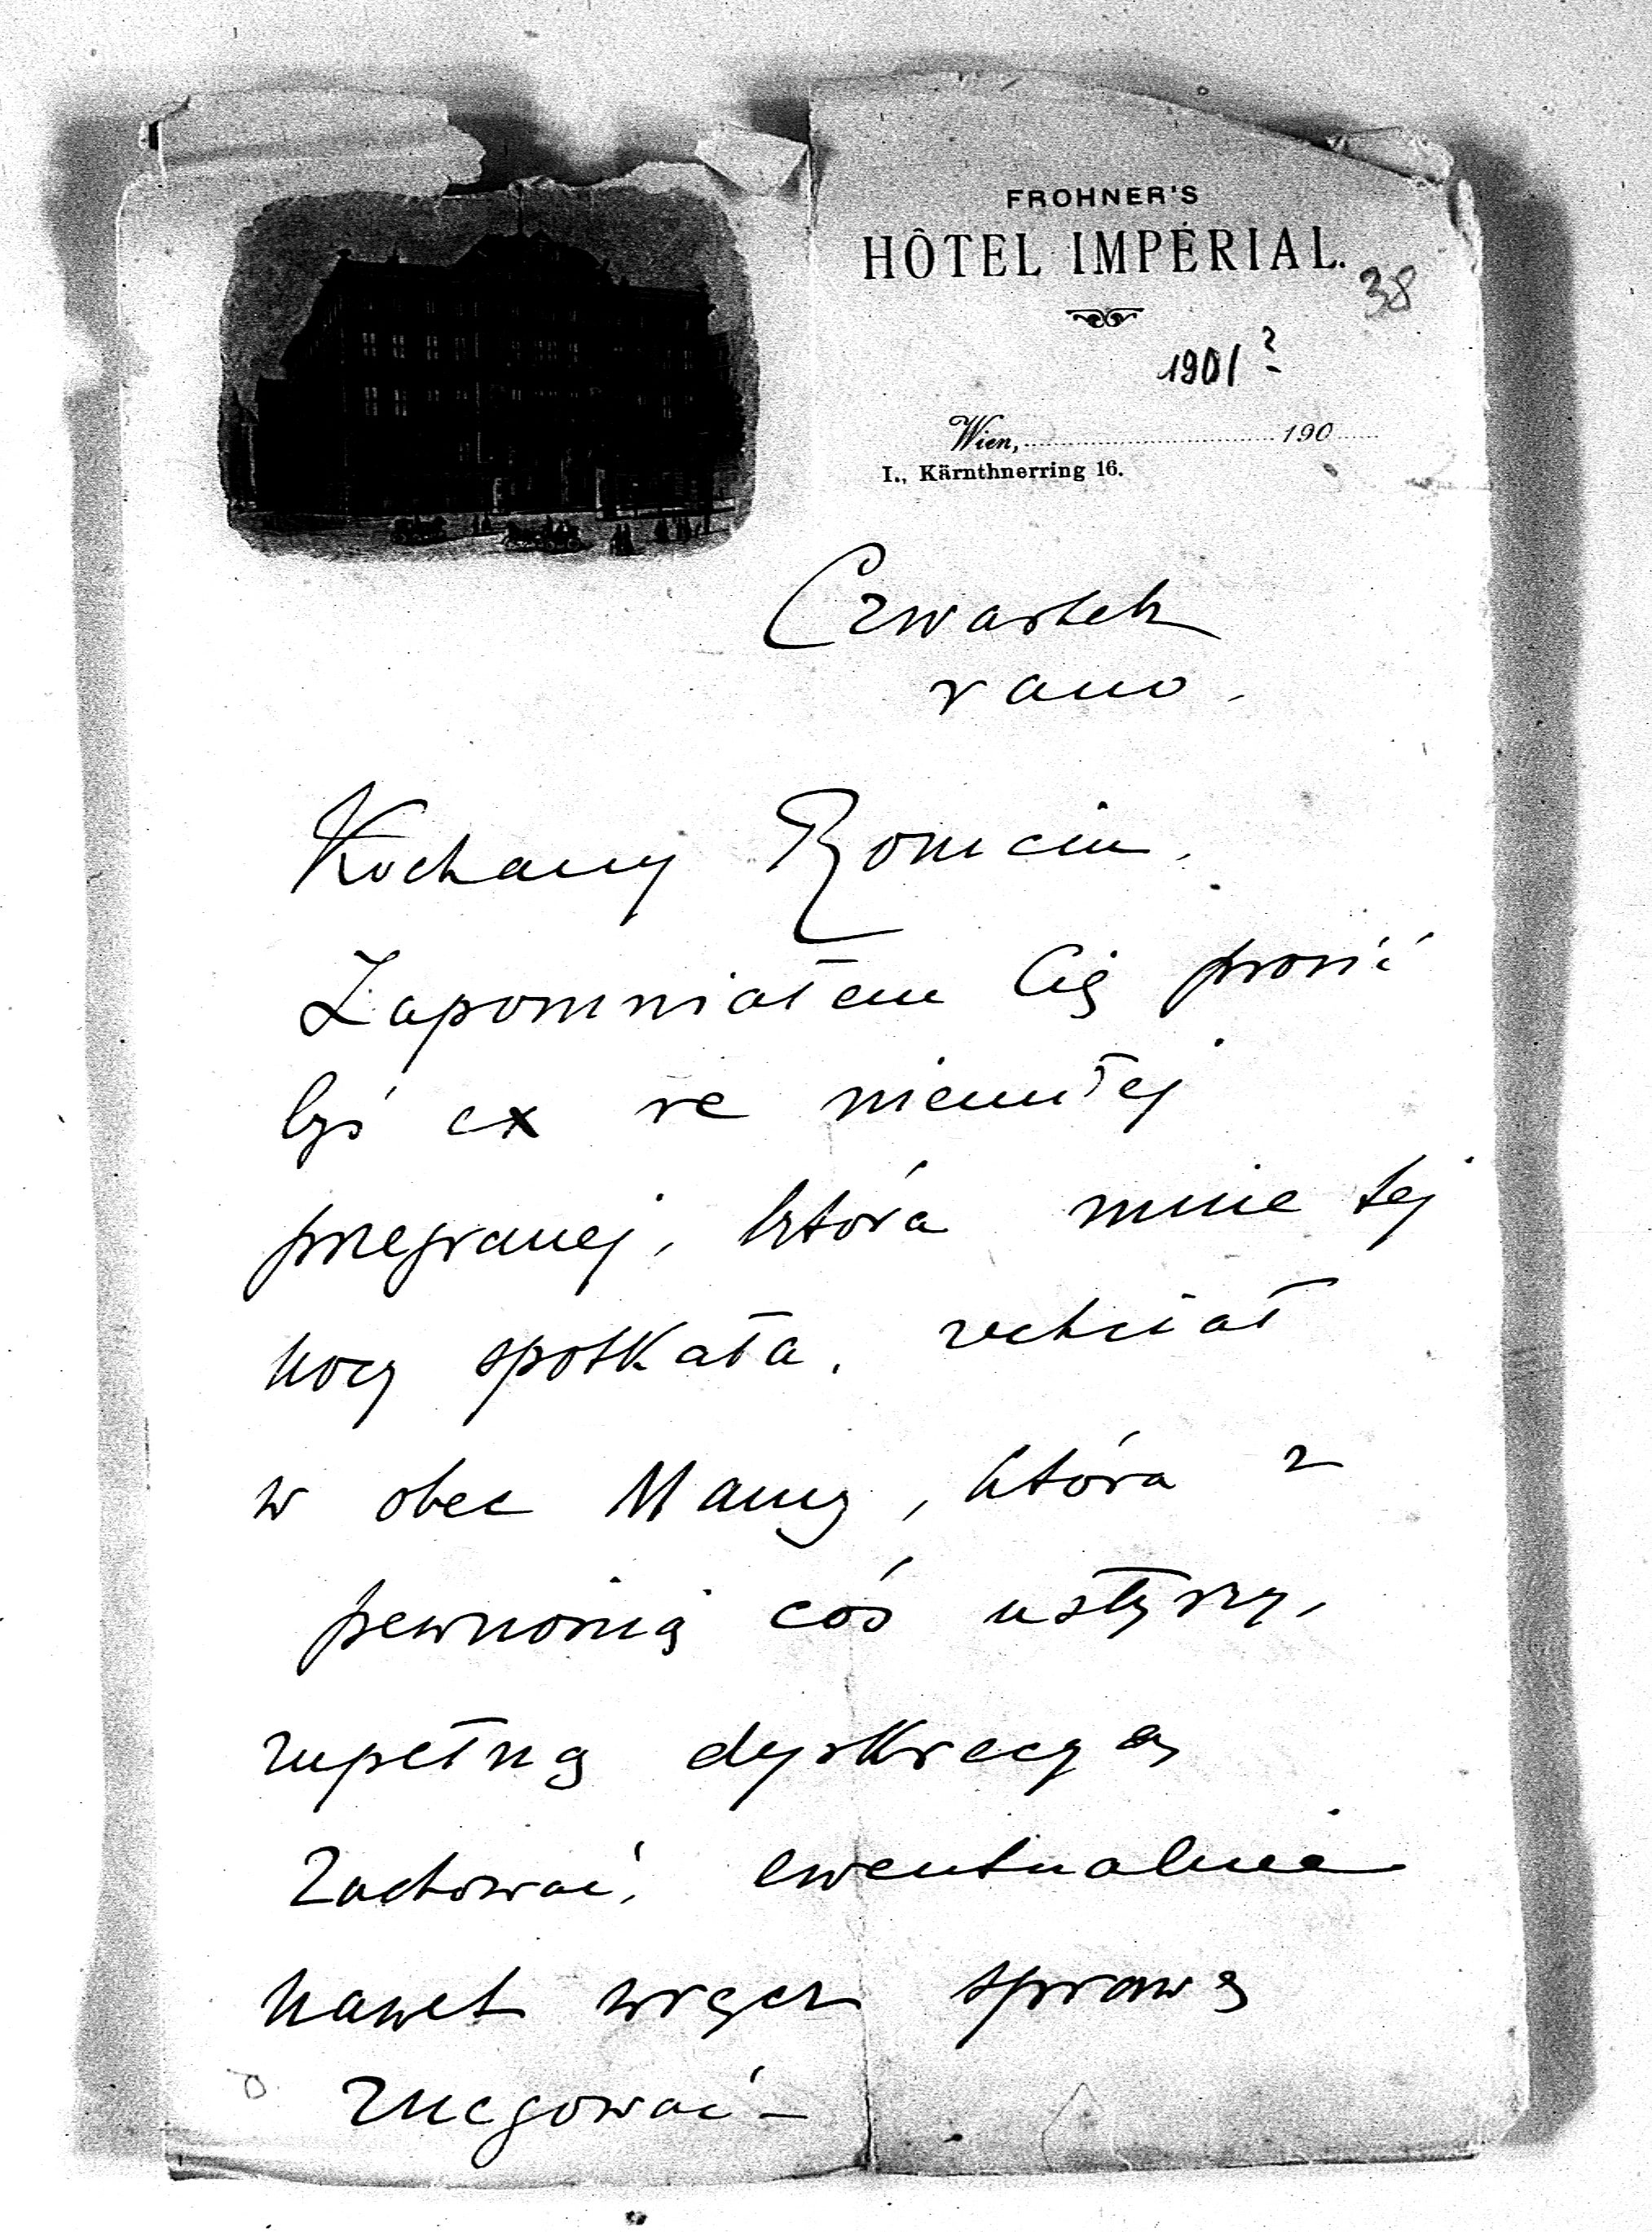 FROHNER'S
HÔTEL IMPÉRIAL.
38
1901?
Wien, 190
I., Kärnthnerring 16.
Czwartek
rano.
Kochany Romciu.
Zapomniałem Cię prosić
byś co ze niemiłej
przegranej, która mnie tej
nocy spotkała, zechciał
w obec Mamy, która z
pewnością coś usłyszy,
zupełną dyskrecyą
zachować, ewentualnie
nawet wręcz sprawę
znegować –